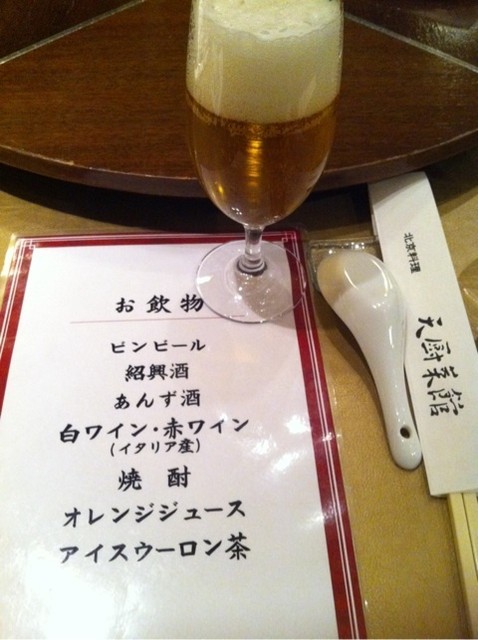 お飲物
ビンビール
紹興酒
あんず酒
白ワイン・赤ワイン
(イタリア産)
焼酎
オレンジジュース
アイスウーロン茶
北京料理
天厨菜館